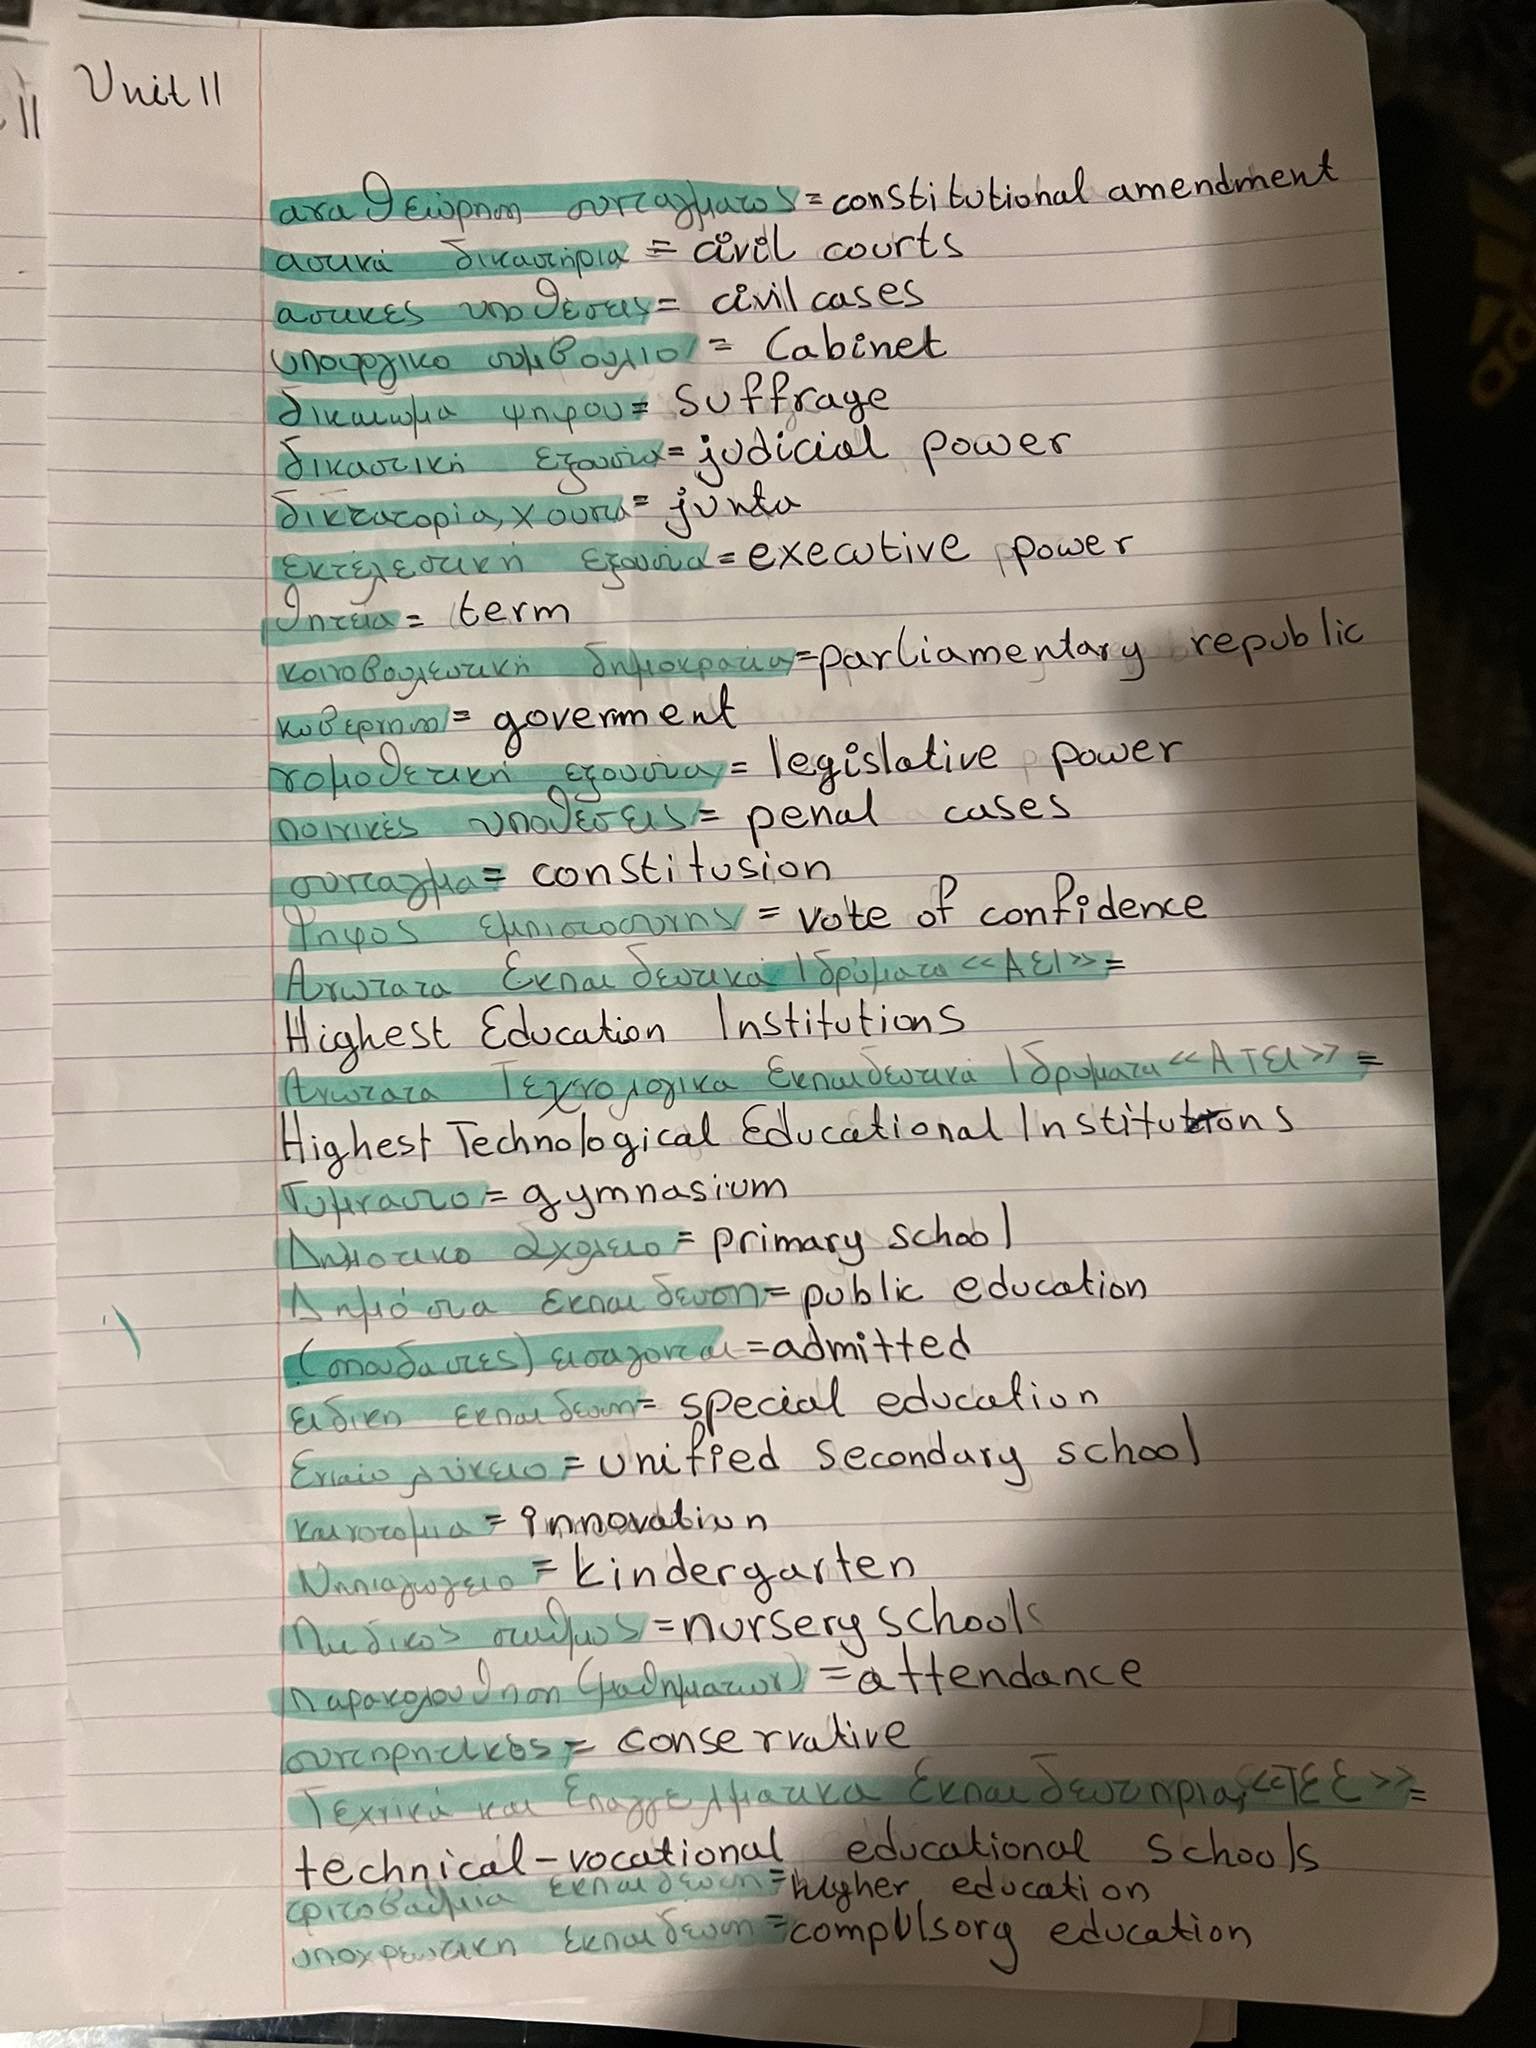 Unit 11
11
αναθεώρηση συνταγματος = constitutional amendment
αστικά δικαστήρια = civil courts
αστικες υποθέσεις = civil cases
υπουργικο συμβουλιο = Cabinet
δικαιωμα ψηφου = suffrage
δικαστική εξουσία = judicial power
δικτατορία, χουντα = junta
εκτελεστική εξουσία = executive power
θητεία = term
κοινοβουλευτική δημοκρατια = parliamentary republic
κυβερνηση = goverment
νομοθετική εξουσία = legislative power
ποινικές υποθέσεις = penal cases
συνταγμα = constitusion
Ψηφος εμπιστοσυνης = vote of confidence
Ανωτατα Εκπαιδευτικά Ιδρύματα «ΑΕΙ» =
Highest Education Institutions
Ανωτατα Τεχνολογικα Εκπαιδευτικά Ιδρυματα «ΑΤΕΙ» =
Highest Technological Educational Institutions
Γυμνασιο = gymnasium
Δημοτικο Σχολειο = primary school
Δημόσια εκπαιδευση = public education
(σπουδαστες) εισαγονται = admitted
ειδικη εκπαιδευση = special education
Ενιαίο λύκειο = unified secondary school
καινοτομια = innovation
Νηπιαγωγειο = kindergarten
Παιδικος σταθμος = nursery schools
Παρακολουθηση (μαθηματων) = attendance
συντηρητικός = conservative
Τεχνικά και Επαγγελματικα Εκπαιδευτηρια, «ΤΕΕ» =
technical-vocational educational schools
τριτοβαθμια εκπαιδευση = higher education
υποχρεωτικη εκπαιδευση = compulsory education